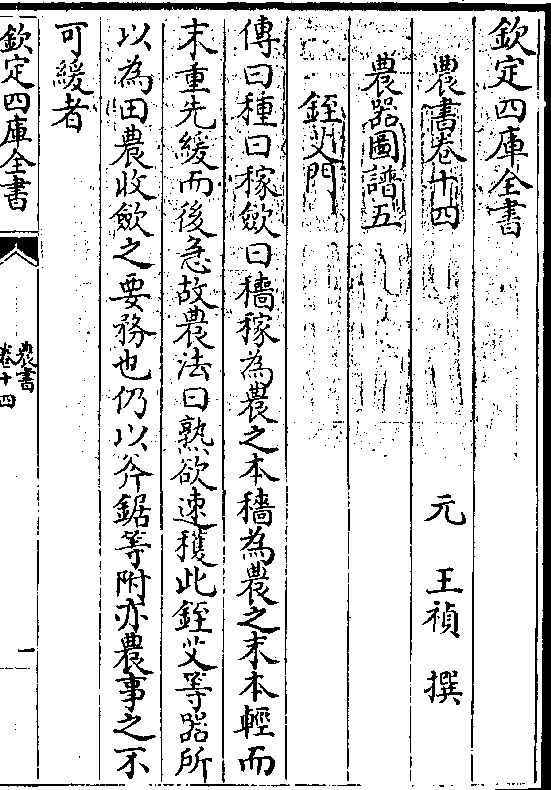 欽定四庫全書
農書卷十四
元 王禎 撰
農器圖譜五
銍艾門
傳曰種曰稼斂曰穡稼為農之本穡為農之末本輕而
末重先緩而後急故農法曰熟欲速穫此銍艾等器所
以為田農收斂之要務也仍以斧鋸等附亦農事之不
可緩者
欽定四庫全書
農書
卷十四
一